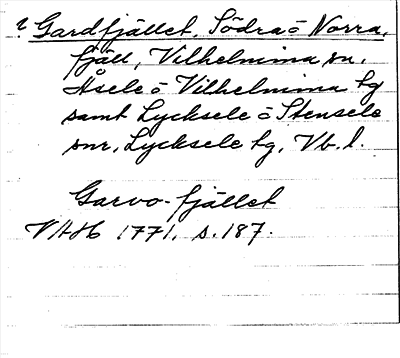 ? Gardfjället, Södra o Norra,
fjäll, Vilhelmina sn,
Åsele o Vilhelmina tg
samt Lycksele o Stensele
snr, Lycksele tg, Vb. l.
Garvo-fjället
VAH 1771, s. 187.